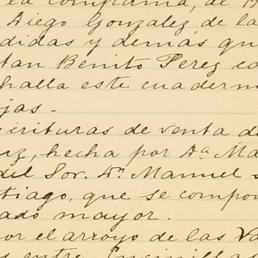 la compañia, de
Diego Gonzalez, de la
didas y demas qu
tan Benito Perez
halla este cuadern
jas.-
crituras de venta d
uz, hecha por Dª Ma
del Sor. Dn Manuel
tiago, que se compon
ado mayor.
or el arroyo de las Va
s entre Encinillas